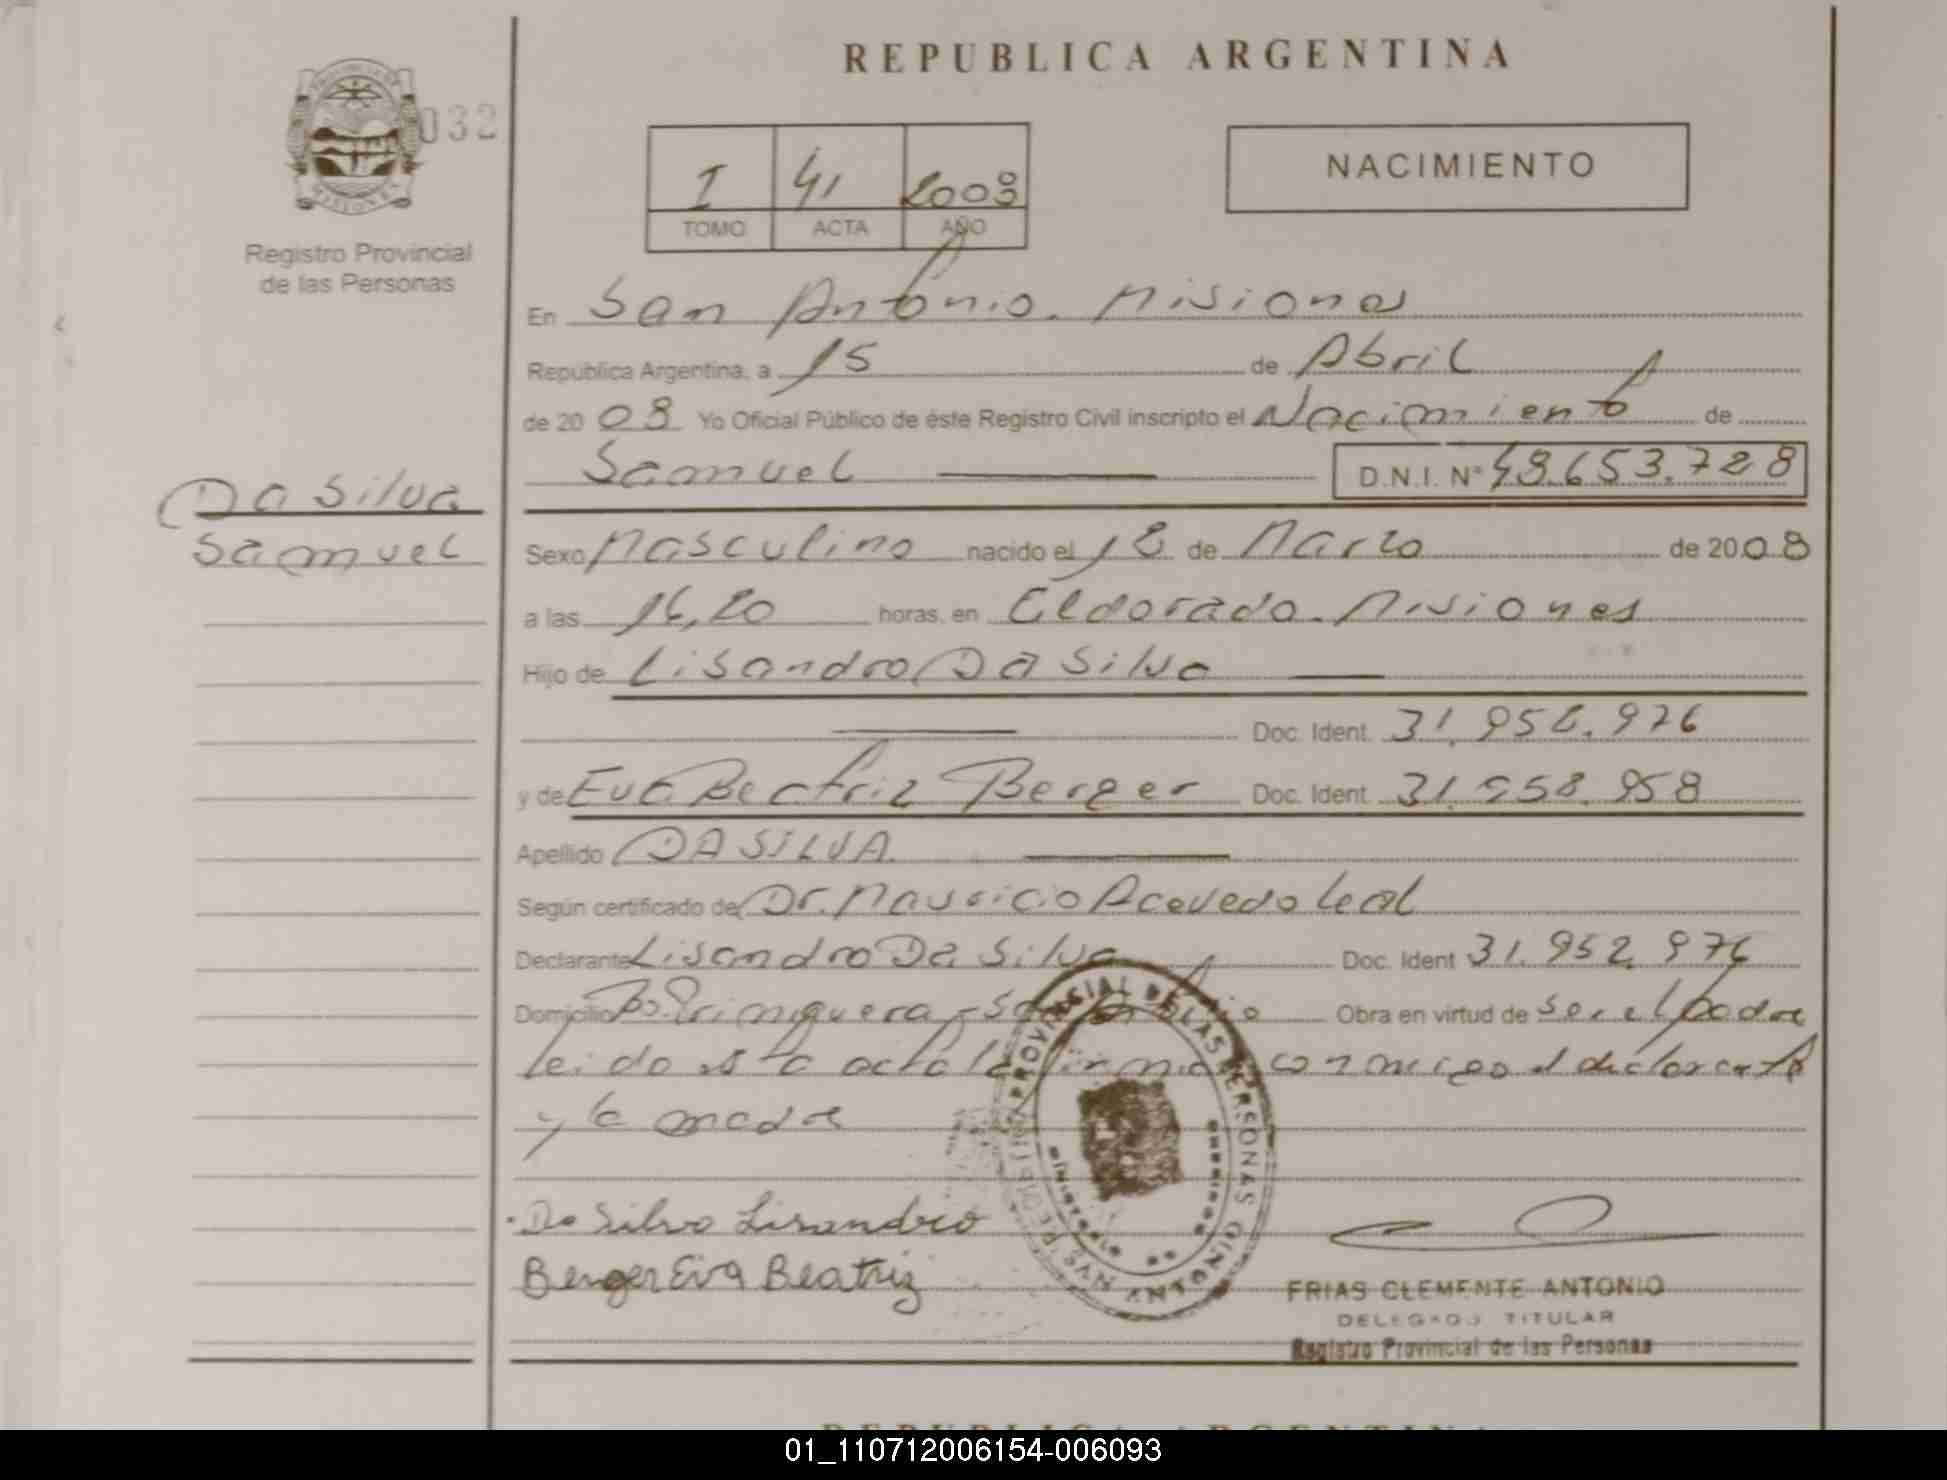 REPUBLICA ARGENTINA
032
I 41 2008
TOMO ACTA AÑO
NACIMIENTO
MISIONES
Registro Provincial
de las Personas
En San Antonio. Misiones
Republica Argentina, a 15 de Abril
de 20 08 Yo Oficial Público de éste Registro Civil inscripto el Nacimiento de
Samuel D.N.I. Nº 48.653.728
Da Silva
Samuel
Sexo Masculino nacido el 18 de Marzo de 20 08
a las 16,20 horas, en Eldorado. Misiones
Hijo de Lisandro Da Silva
Doc. Ident. 31.952.976
y de Eva Beatriz Berger Doc. Ident. 31.958.958
Apellido DA SILVA
Según certificado de Dr. Mauricio Acevedo Leal
Declarante Lisandro Da Silva Doc. Ident 31.952.976
Domicilio Obra en virtud de ser el padre
leido esta acta la firma conmigo el declarante
y la madre
Da Silva Lisandro
Berger Eva Beatriz
PROVINCIAL DE LAS PERSONAS
FRIAS CLEMENTE ANTONIO
DELEGADO TITULAR
Registro Provincial de las Personas
REPUBLICA ARGENTINA
01_110712006154-006093